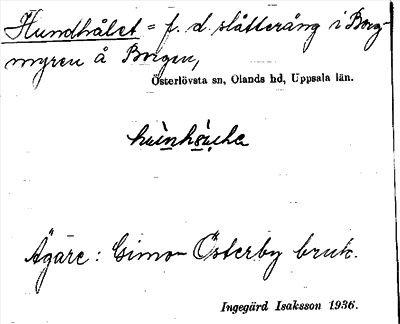 Hundhålet = f. d. slåtteräng i Borg-
myren å Borgen,
Österlövsta sn, Olands hd, Uppsala län.
Ägare: Gimo-Österby bruk.
Ingegärd Isaksson 1936.